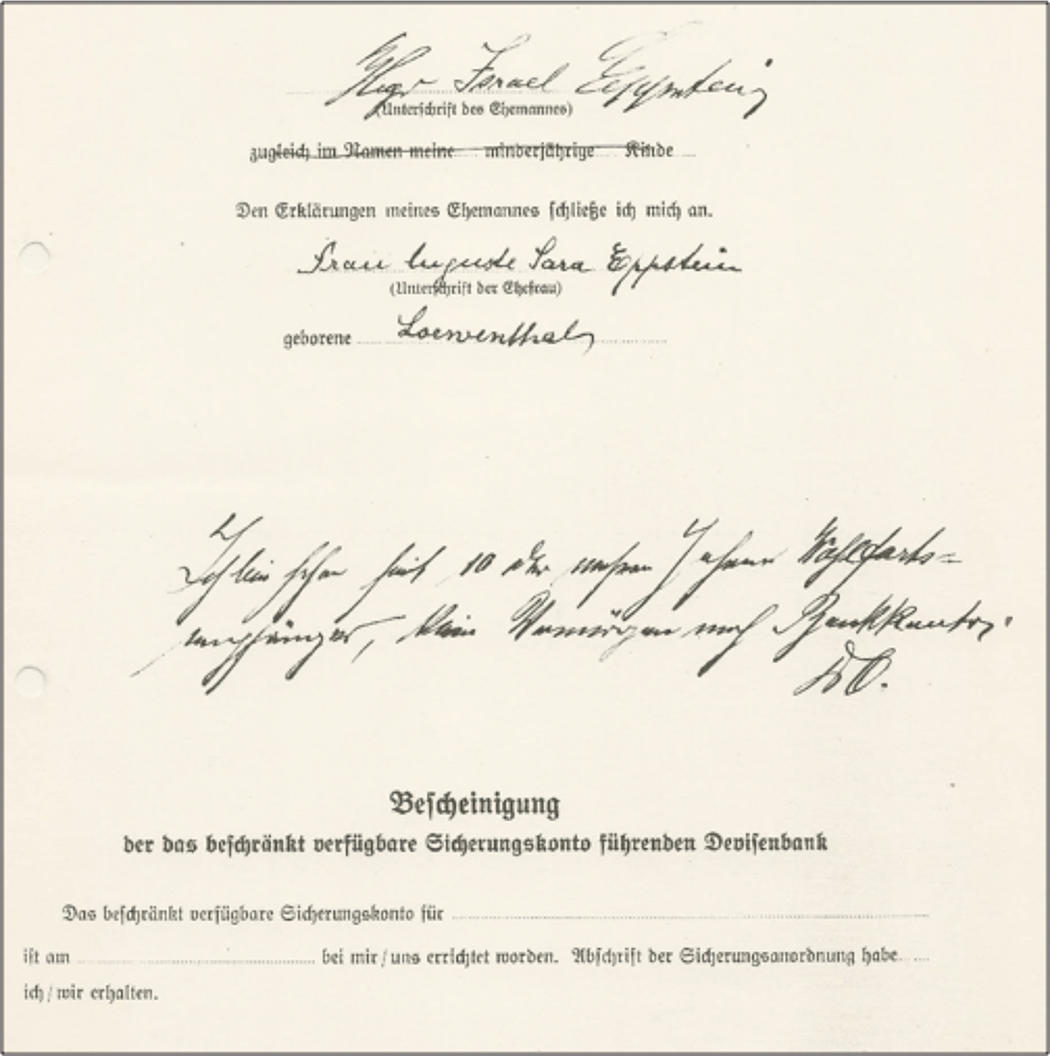 Israel Eppstein
(Unterschrift des Ehemannes)
zugleich im Namen meine minderjährige Kinde
Den Erklärungen meines Ehemannes schließe ich mich an.
Frau Auguste Sara Eppstein
(Unterschrift der Ehefrau)
geborene Loewenthal
Ich bin schon seit 10 oder mehren Jahren Wohlfarts=
empfänger, kein Vermögen noch Bankkonto.
Bescheinigung
der das beschränkt verfügbare Sicherungskonto führenden Devisenbank
Das beschränkt verfügbare Sicherungskonto für
ist am bei mir/uns errichtet worden. Abschrift der Sicherungsanordnung habe
ich/wir erhalten.